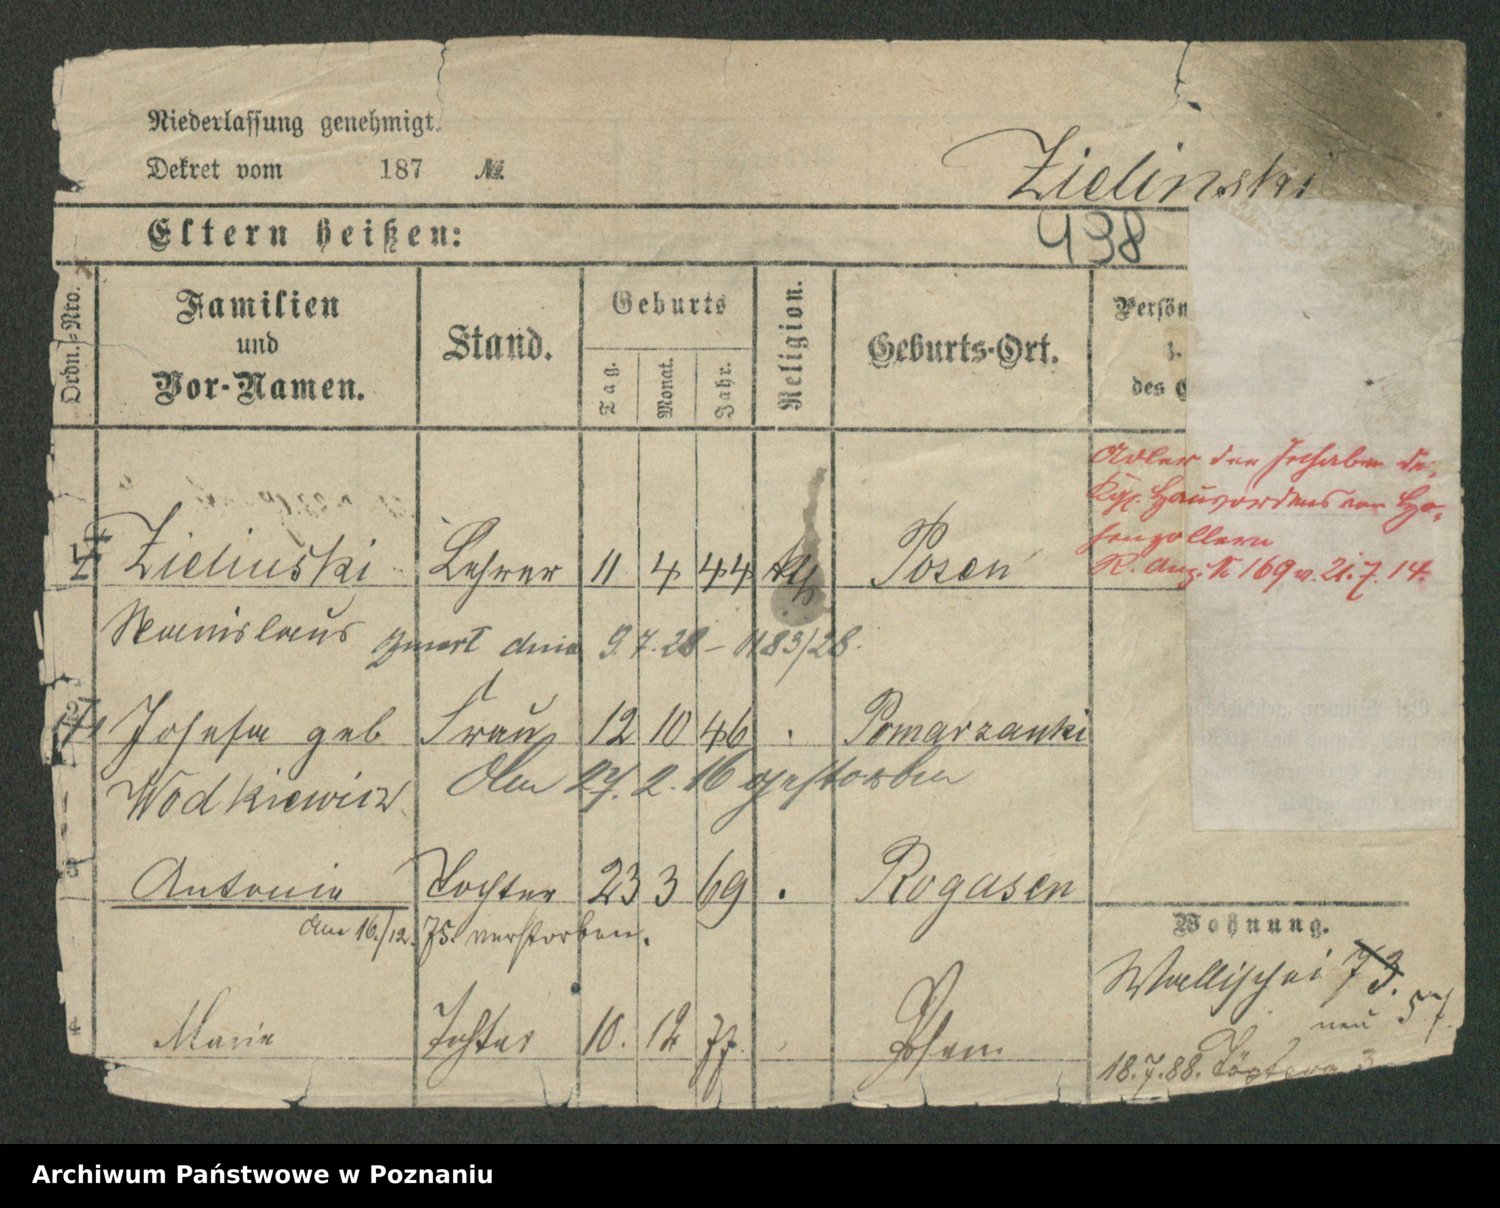 Niederlassung genehmigt.
Dekret vom 187 №
Zielinski
Eltern heißen:
938
Ordn.-Nro.
Familien und Vor-Namen.
Stand.
Geburts
Tag. Monat. Jahr.
Religion.
Geburts-Ort.
Persön
z.
des
Adler der Inhaber de
Kgl. Hausordens von Ho-
henzollern
R. Anz. № 169 v. 21.7.14.
1 Zielinski Lehrer 11 4 44 kth Posen
Stanislaus zmarł dnia 9.7.28 – 1183/28.
2 Josefa geb Frau 12 10 46 . Pomarzanki
Wodkiewicz den 27.2.16 gestorben
3 Antonie Tochter 23 3 69 . Rogasen
den 16./12. 75. verstorben.
Wohnung.
Wallischei 73.
neu 57
4 Marie Tochter 10. 12 77. Posen
18.7.88. Töpferg 3
Archiwum Państwowe w Poznaniu